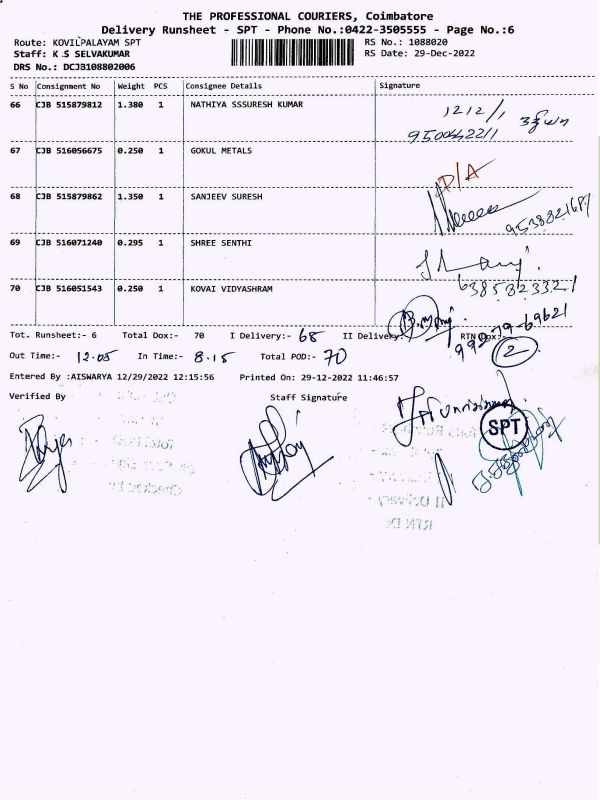 THE PROFESSIONAL COURIERS, Coimbatore
Delivery Runsheet - SPT - Phone No.:0422-3505555 - Page No.:6
Route: KOVILPALAYAM SPT
Staff: K S SELVAKUMAR
DRS No.: DCJB108802006
RS No.: 1088020
RS Date: 29-Dec-2022
S No Consignment No Weight PCS Consignee Details Signature
66 CJB 515879812 1.380 1 NATHIYA SSSURESH KUMAR 1212/1
67 CJB 516056675 0.250 1 GOKUL METALS P/A
68 CJB 515879862 1.350 1 SANJEEV SURESH
69 CJB 516071240 0.295 1 SHREE SENTHI
6385323321
70 CJB 516051543 0.250 1 KOVAI VIDYASHRAM
99279-69621
Tot. Runsheet:- 6 Total Dox:- 70 I Delivery:- 68 II Delivery:- RTN Dox:- 2
Out Time:- 12.05 In Time:- 8.15 Total POD:- 70
Entered By :AISWARYA 12/29/2022 12:15:56 Printed On: 29-12-2022 11:46:57
Verified By Staff Signature
SPT